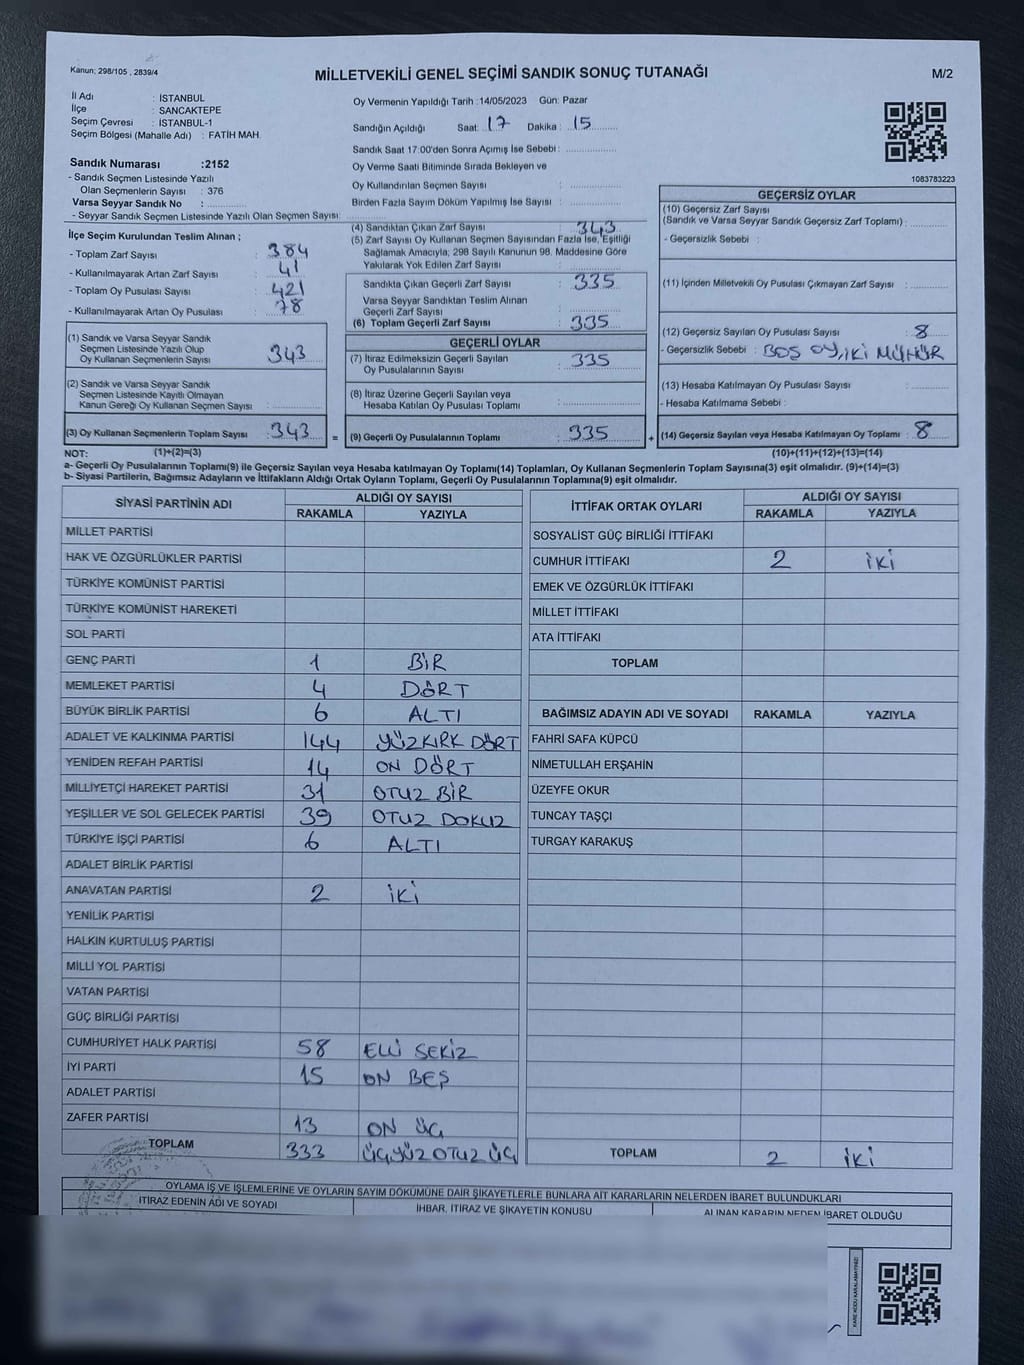 Kanun; 298/105 , 2839/4
MİLLETVEKİLİ GENEL SEÇİMİ SANDIK SONUÇ TUTANAĞI
M/2
İl Adı : İSTANBUL
İlçe : SANCAKTEPE
Seçim Çevresi : İSTANBUL-1
Seçim Bölgesi (Mahalle Adı) : FATİH MAH.
Sandık Numarası :2152
- Sandık Seçmen Listesinde Yazılı
Olan Seçmenlerin Sayısı : 376
Varsa Seyyar Sandık No :
- Seyyar Sandık Seçmen Listesinde Yazılı Olan Seçmen Sayısı:
Oy Vermenin Yapıldığı Tarih :14/05/2023 Gün: Pazar
Sandığın Açıldığı Saat: 17 Dakika : 15
Sandık Saat 17:00'den Sonra Açımış İse Sebebi :
Oy Verme Saati Bitiminde Sırada Bekleyen ve
Oy Kullandırılan Seçmen Sayısı :
Birden Fazla Sayım Döküm Yapılmış İse Sayısı :
1083783223
İlçe Seçim Kurulundan Teslim Alınan ;
- Toplam Zarf Sayısı : 384
- Kullanılmayarak Artan Zarf Sayısı : 41
- Toplam Oy Pusulası Sayısı : 421
- Kullanılmayarak Artan Oy Pusulası : 78
(1) Sandık ve Varsa Seyyar Sandık
Seçmen Listesinde Yazılı Olup
Oy Kullanan Seçmenlerin Sayısı : 343
(2) Sandık ve Varsa Seyyar Sandık
Seçmen Listesinde Kayıtlı Olmayan
Kanun Gereği Oy Kullanan Seçmen Sayısı :
(3) Oy Kullanan Seçmenlerin Toplam Sayısı : 343
(4) Sandıktan Çıkan Zarf Sayısı : 343
(5) Zarf Sayısı Oy Kullanan Seçmen Sayısından Fazla İse, Eşitliği
Sağlamak Amacıyla; 298 Sayılı Kanunun 98. Maddesine Göre
Yakılarak Yok Edilen Zarf Sayısı :
Sandıkta Çıkan Geçerli Zarf Sayısı : 335
Varsa Seyyar Sandıktan Teslim Alınan
Geçerli Zarf Sayısı :
(6) Toplam Geçerli Zarf Sayısı : 335
GEÇERLİ OYLAR
(7) İtiraz Edilmeksizin Geçerli Sayılan
Oy Pusulalarının Sayısı : 335
(8) İtiraz Üzerine Geçerli Sayılan veya
Hesaba Katılan Oy Pusulası Toplamı :
= (9) Geçerli Oy Pusulalarının Toplamı : 335
GEÇERSİZ OYLAR
(10) Geçersiz Zarf Sayısı
(Sandık ve Varsa Seyyar Sandık Geçersiz Zarf Toplamı) :
- Geçersizlik Sebebi :
(11) İçinden Milletvekili Oy Pusulası Çıkmayan Zarf Sayısı :
(12) Geçersiz Sayılan Oy Pusulası Sayısı : 8
- Geçersizlik Sebebi : BOŞ OY, İKİ MÜHÜR
(13) Hesaba Katılmayan Oy Pusulası Sayısı :
- Hesaba Katılmama Sebebi :
+ (14) Geçersiz Sayılan veya Hesaba Katılmayan Oy Toplamı : 8
NOT: (1)+(2)=(3)
(10)+(11)+(12)+(13)=(14)
a- Geçerli Oy Pusulalarının Toplamı(9) ile Geçersiz Sayılan veya Hesaba katılmayan Oy Toplamı(14) Toplamları, Oy Kullanan Seçmenlerin Toplam Sayısına(3) eşit olmalıdır. (9)+(14)=(3)
b- Siyasi Partilerin, Bağımsız Adayların ve İttifakların Aldığı Ortak Oyların Toplamı, Geçerli Oy Pusulalarının Toplamına(9) eşit olmalıdır.
SİYASİ PARTİNİN ADI
ALDIĞI OY SAYISI
RAKAMLA YAZIYLA
MİLLET PARTİSİ
HAK VE ÖZGÜRLÜKLER PARTİSİ
TÜRKİYE KOMÜNİST PARTİSİ
TÜRKİYE KOMÜNİST HAREKETİ
SOL PARTİ
GENÇ PARTİ 1 BİR
MEMLEKET PARTİSİ 4 DÖRT
BÜYÜK BİRLİK PARTİSİ 6 ALTI
ADALET VE KALKINMA PARTİSİ 144 YÜZKIRK DÖRT
YENİDEN REFAH PARTİSİ 14 ON DÖRT
MİLLİYETÇİ HAREKET PARTİSİ 31 OTUZ BİR
YEŞİLLER VE SOL GELECEK PARTİSİ 39 OTUZ DOKUZ
TÜRKİYE İŞÇİ PARTİSİ 6 ALTI
ADALET BİRLİK PARTİSİ
ANAVATAN PARTİSİ 2 İKİ
YENİLİK PARTİSİ
HALKIN KURTULUŞ PARTİSİ
MİLLİ YOL PARTİSİ
VATAN PARTİSİ
GÜÇ BİRLİĞİ PARTİSİ
CUMHURİYET HALK PARTİSİ 58 ELLİ SEKİZ
İYİ PARTİ 15 ON BEŞ
ADALET PARTİSİ
ZAFER PARTİSİ 13 ON ÜÇ
TOPLAM 333 ÜÇYÜZ OTUZ ÜÇ
İTTİFAK ORTAK OYLARI
ALDIĞI OY SAYISI
RAKAMLA YAZIYLA
SOSYALİST GÜÇ BİRLİĞİ İTTİFAKI
CUMHUR İTTİFAKI 2 İKİ
EMEK VE ÖZGÜRLÜK İTTİFAKI
MİLLET İTTİFAKI
ATA İTTİFAKI
TOPLAM
BAĞIMSIZ ADAYIN ADI VE SOYADI RAKAMLA YAZIYLA
FAHRİ SAFA KÜPCÜ
NİMETULLAH ERŞAHİN
ÜZEYFE OKUR
TUNCAY TAŞÇI
TURGAY KARAKUŞ
TOPLAM 2 İKİ
OYLAMA İŞ VE İŞLEMLERİNE VE OYLARIN SAYIM DÖKÜMÜNE DAİR ŞİKAYETLERLE BUNLARA AİT KARARLARIN NELERDEN İBARET BULUNDUKLARI
İTİRAZ EDENİN ADI VE SOYADI
İHBAR, İTİRAZ VE ŞİKAYETİN KONUSU
ALINAN KARARIN NEDEN İBARET OLDUĞU
KARE KODU KARALAMAYINIZ!